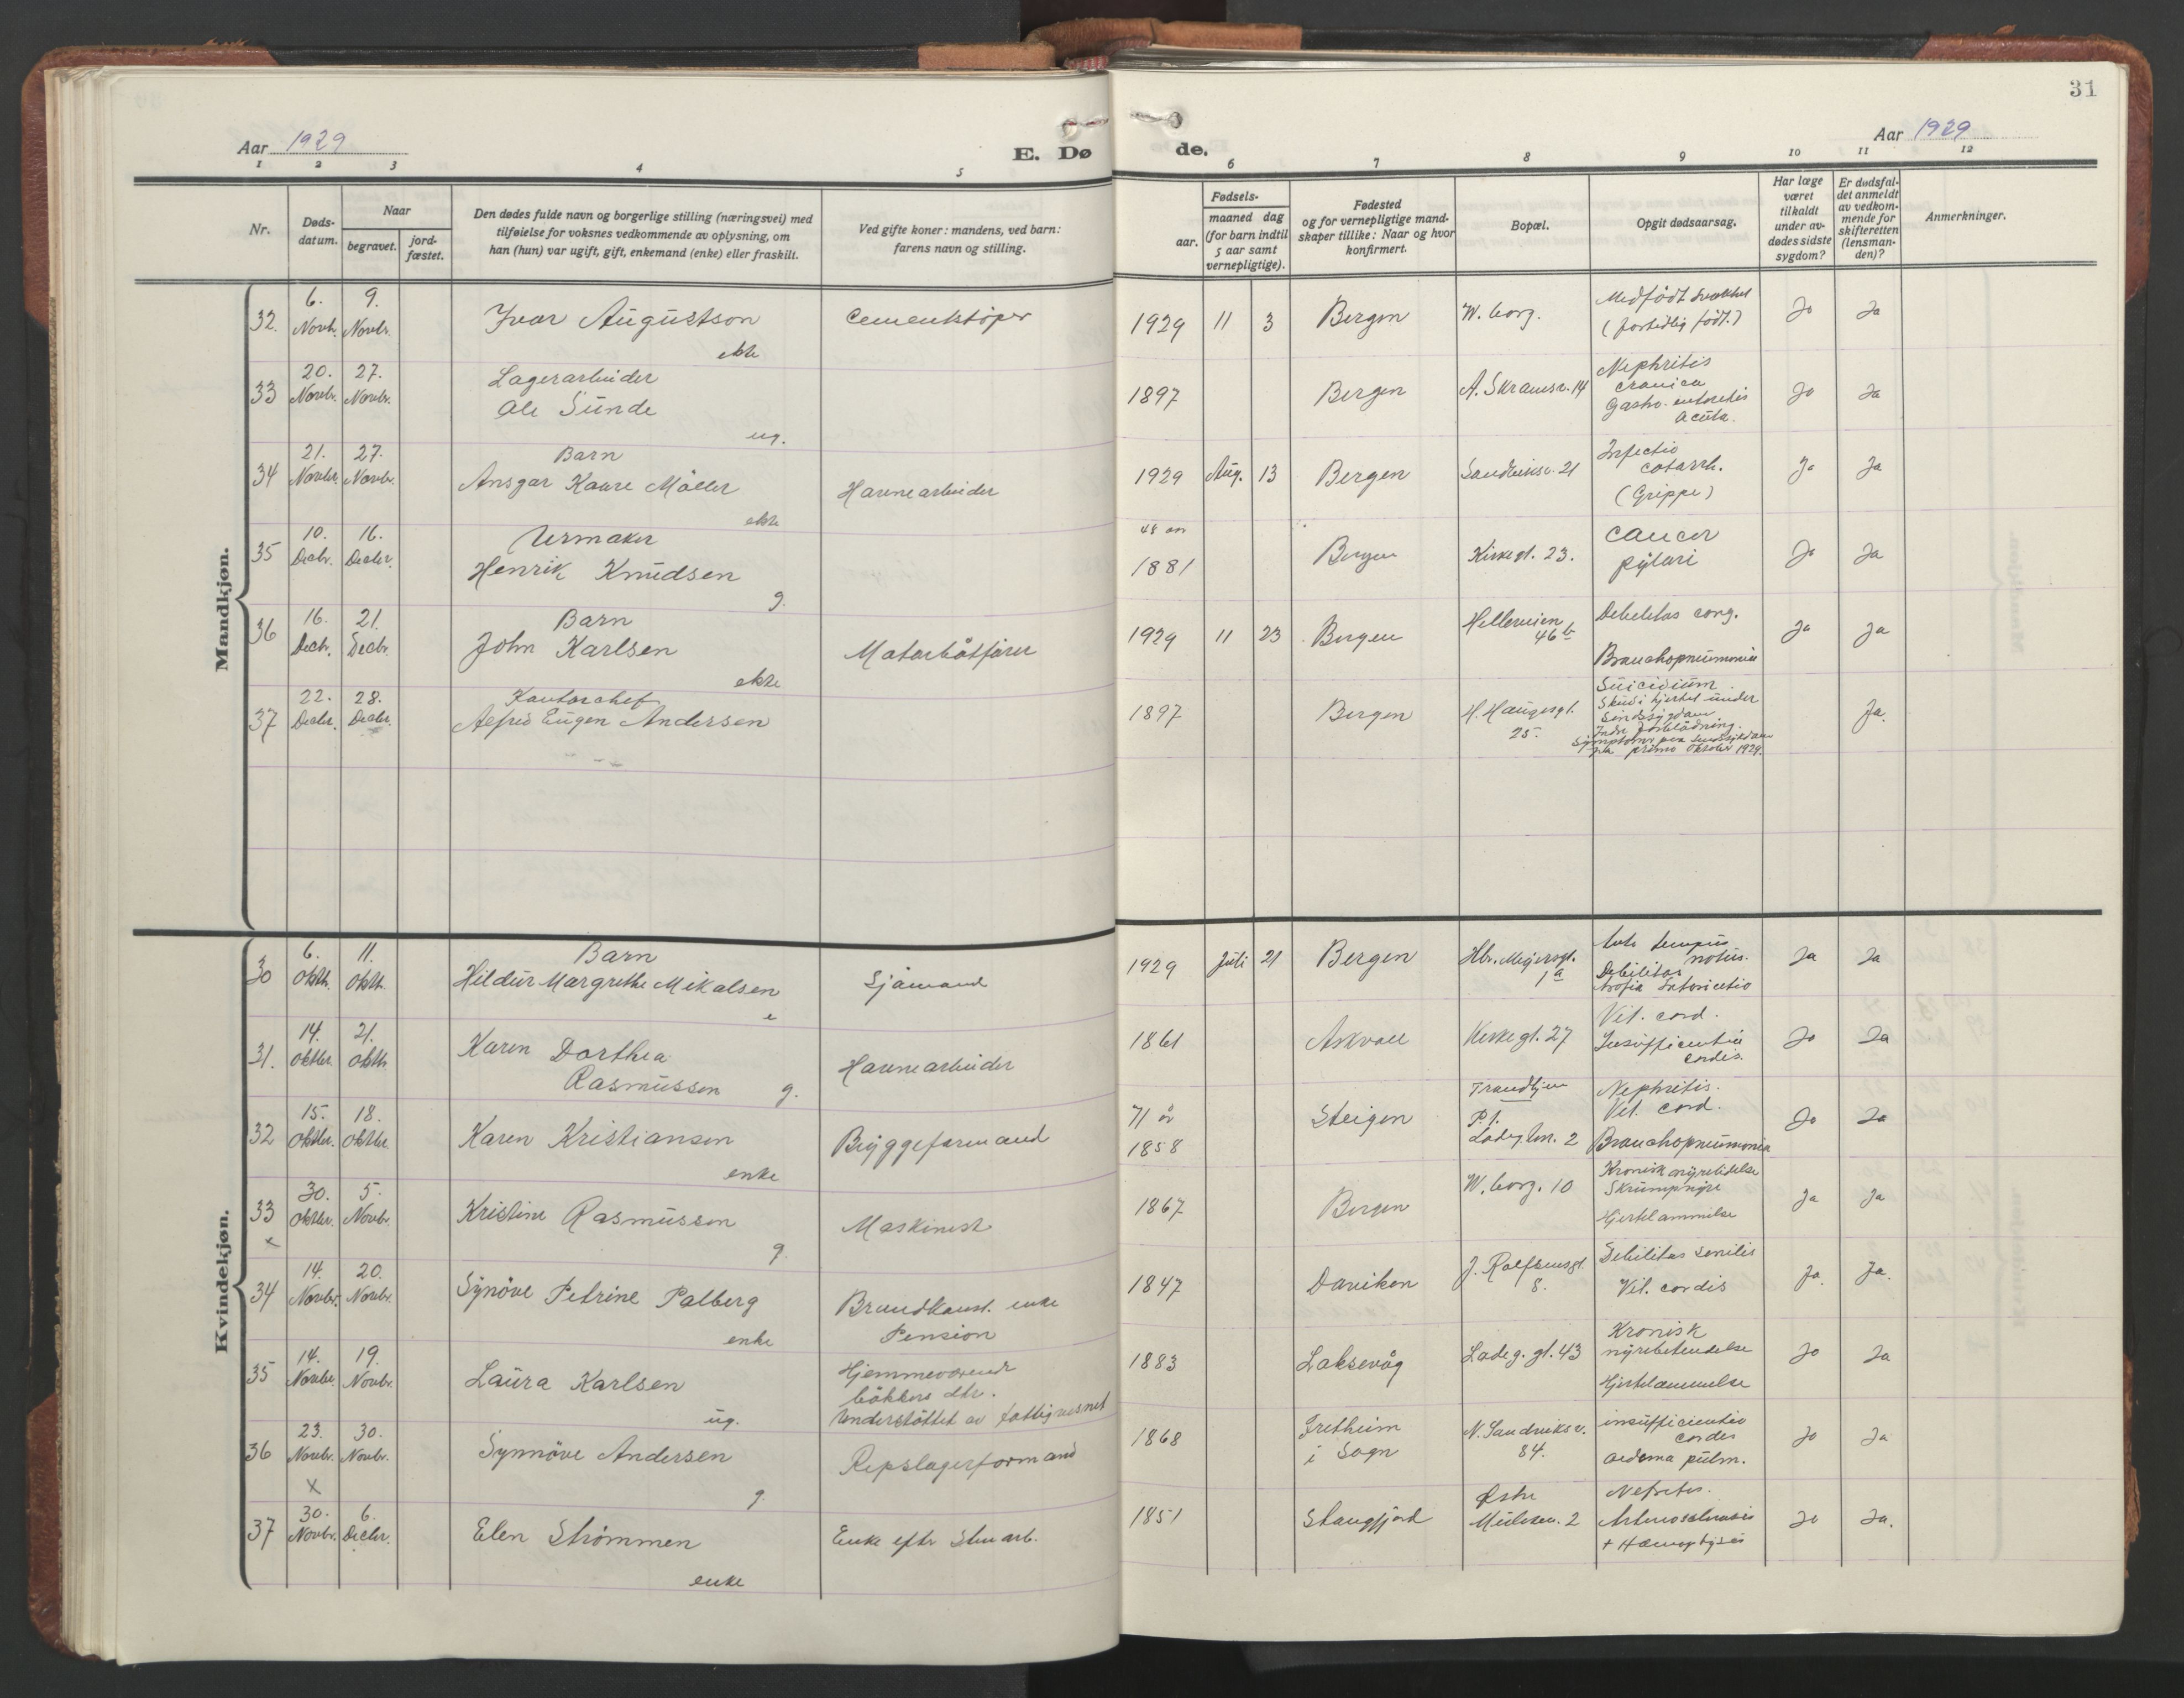 31
Aar 1929
E. Dø
de.
Aar 1929
1 2 3 4 5 6 7 8 9 10 11 12
Nr.
Døds-
datum.
Naar
begravet.
jord-
fæstet.
Den dødes fulde navn og borgerlige stilling (næringsvei) med
tilføielse for voksnes vedkommende av oplysning, om
han (hun) var ugift, gift, enkemand (enke) eller fraskilt.
Ved gifte koner: mandens, ved barn:
farens navn og stilling.
Fødsels-
aar.
maaned dag
(for barn indtil
5 aar samt
vernepligtige).
Fødested
og for vernepligtige mand-
skaper tillike: Naar og hvor
konfirmert.
Bopæl.
Opgit dødsaarsag.
Har læge
været
tilkaldt
under av-
dødes sidste
sygdom?
Er dødsfal-
det anmeldt
av vedkom-
mende for
skifteretten
(lensman-
den)?
Anmerkninger.
Mandkjøn.
32. 6. Novb. 9. Novbr. Ivar Augustson ekte Cementstöper 1929 11 3 Bergen W. Corg. Medfödt svakhet
(fortidlig födt.) Ja Ja
33 20. Novbr. 27. Novbr. Lagerarbeider
Ole Sunde ug. 1897 Bergen A. Skramsv. 14 Nephritis
cronica
Gastro-enteretis
acuta. Ja Ja
34 21. Novbr. 27. Novbr. Barn
Ansgar Kaare Möller ekte Havnearbeider 1929 Aug. 13 Bergen Sandviksv. 21 Infectio
catarrh.
(Grippe) Ja Ja
35 10. Decbr. 16. Decbr. Urmaker
Henrik Knudsen g. 48 aar
1881 Bergen Kirkegt. 23. Cancer
pylari Ja Ja
36 16. Decbr. 21. Decbr. Barn
John Karlsen ekte Motorbåtförer 1929 11 23 Bergen Helleveien
46 b Debilitas cong.
Bronchopneumonia Ja Ja
37 22. Decbr. 28. Decbr. Kontorchef
Alfred Eugen Andersen 1897 Bergen H. Haugesgt.
25. Suicidium
Skud i hjertet under
Sindssygdom
Indre forblödning.
Symptomer paa Sindssykdom
fra primo Oktober 1929. Ja.
Kvindekjøn.
30 6. Oktb. 11. Oktb. Barn
Hildur Margrethe Mikalsen e Sjömand 1929 Juli 21 Bergen Hbr. Meyersgt.
1 a Ante tempus
notus.
Debilitas
Atrofia Intoxicatio Ja Ja
31. 14. Oktbr. 21. Oktb. Karen Dorthea
Rasmussen g. Havnearbeider 1861 Askvoll Kirkegt. 27 Vit. cord.
Insufficientia
cordis. Ja Ja
32 15. Oktbr. 18. Oktbr. Karen Kristiansen enke Bryggeformand 71 år
1858 Steigen Trondhjem
P.t.
Ladeg.ten. 2 Nephritis.
Vit. cord.
Bronchopneumonia Ja Ja
33 x 30. Oktbr. 5. Novbr. Kristine Rasmussen g. Maskinist 1867 Bergen W. Corg. 10 Kronisk nyrelidelse
Skrumpnyre
Hjertelammelse Ja Ja
34 14. Novbr. 20. Novbr. Synöve Petrine Palberg enke Brandkonst. enke
Pension 1847 Daviken J. Rolfsensgt.
8. Debilitas senilis
Vit. cordis Ja. Ja.
35 14. Novbr. 19. Novbr. Laura Karlsen ug. Hjemmeværende
bökkers dtr.
Understöttet av fattigvesnet 1883 Laksevåg Ladeg. gt. 43 Kronisk
nyrebetendelse
Hjertelammelse Ja Ja
36 23. Novbr. x 30. Novbr. Synnöve Andersen g. Repslagerformand 1868 Fretheim
i Sogn N. Sandviksv.
84. insufficientio
cordis
oedema pulm. Ja Ja
37 30. Novbr. 6. Decbr. Elen Strömmen enke Enke efter Stenarb. 1851 Stangfjord Østre
Muleleu. 2 Nefritis.
Arteriosclerosis
+ Hæmoptysis Ja Ja.